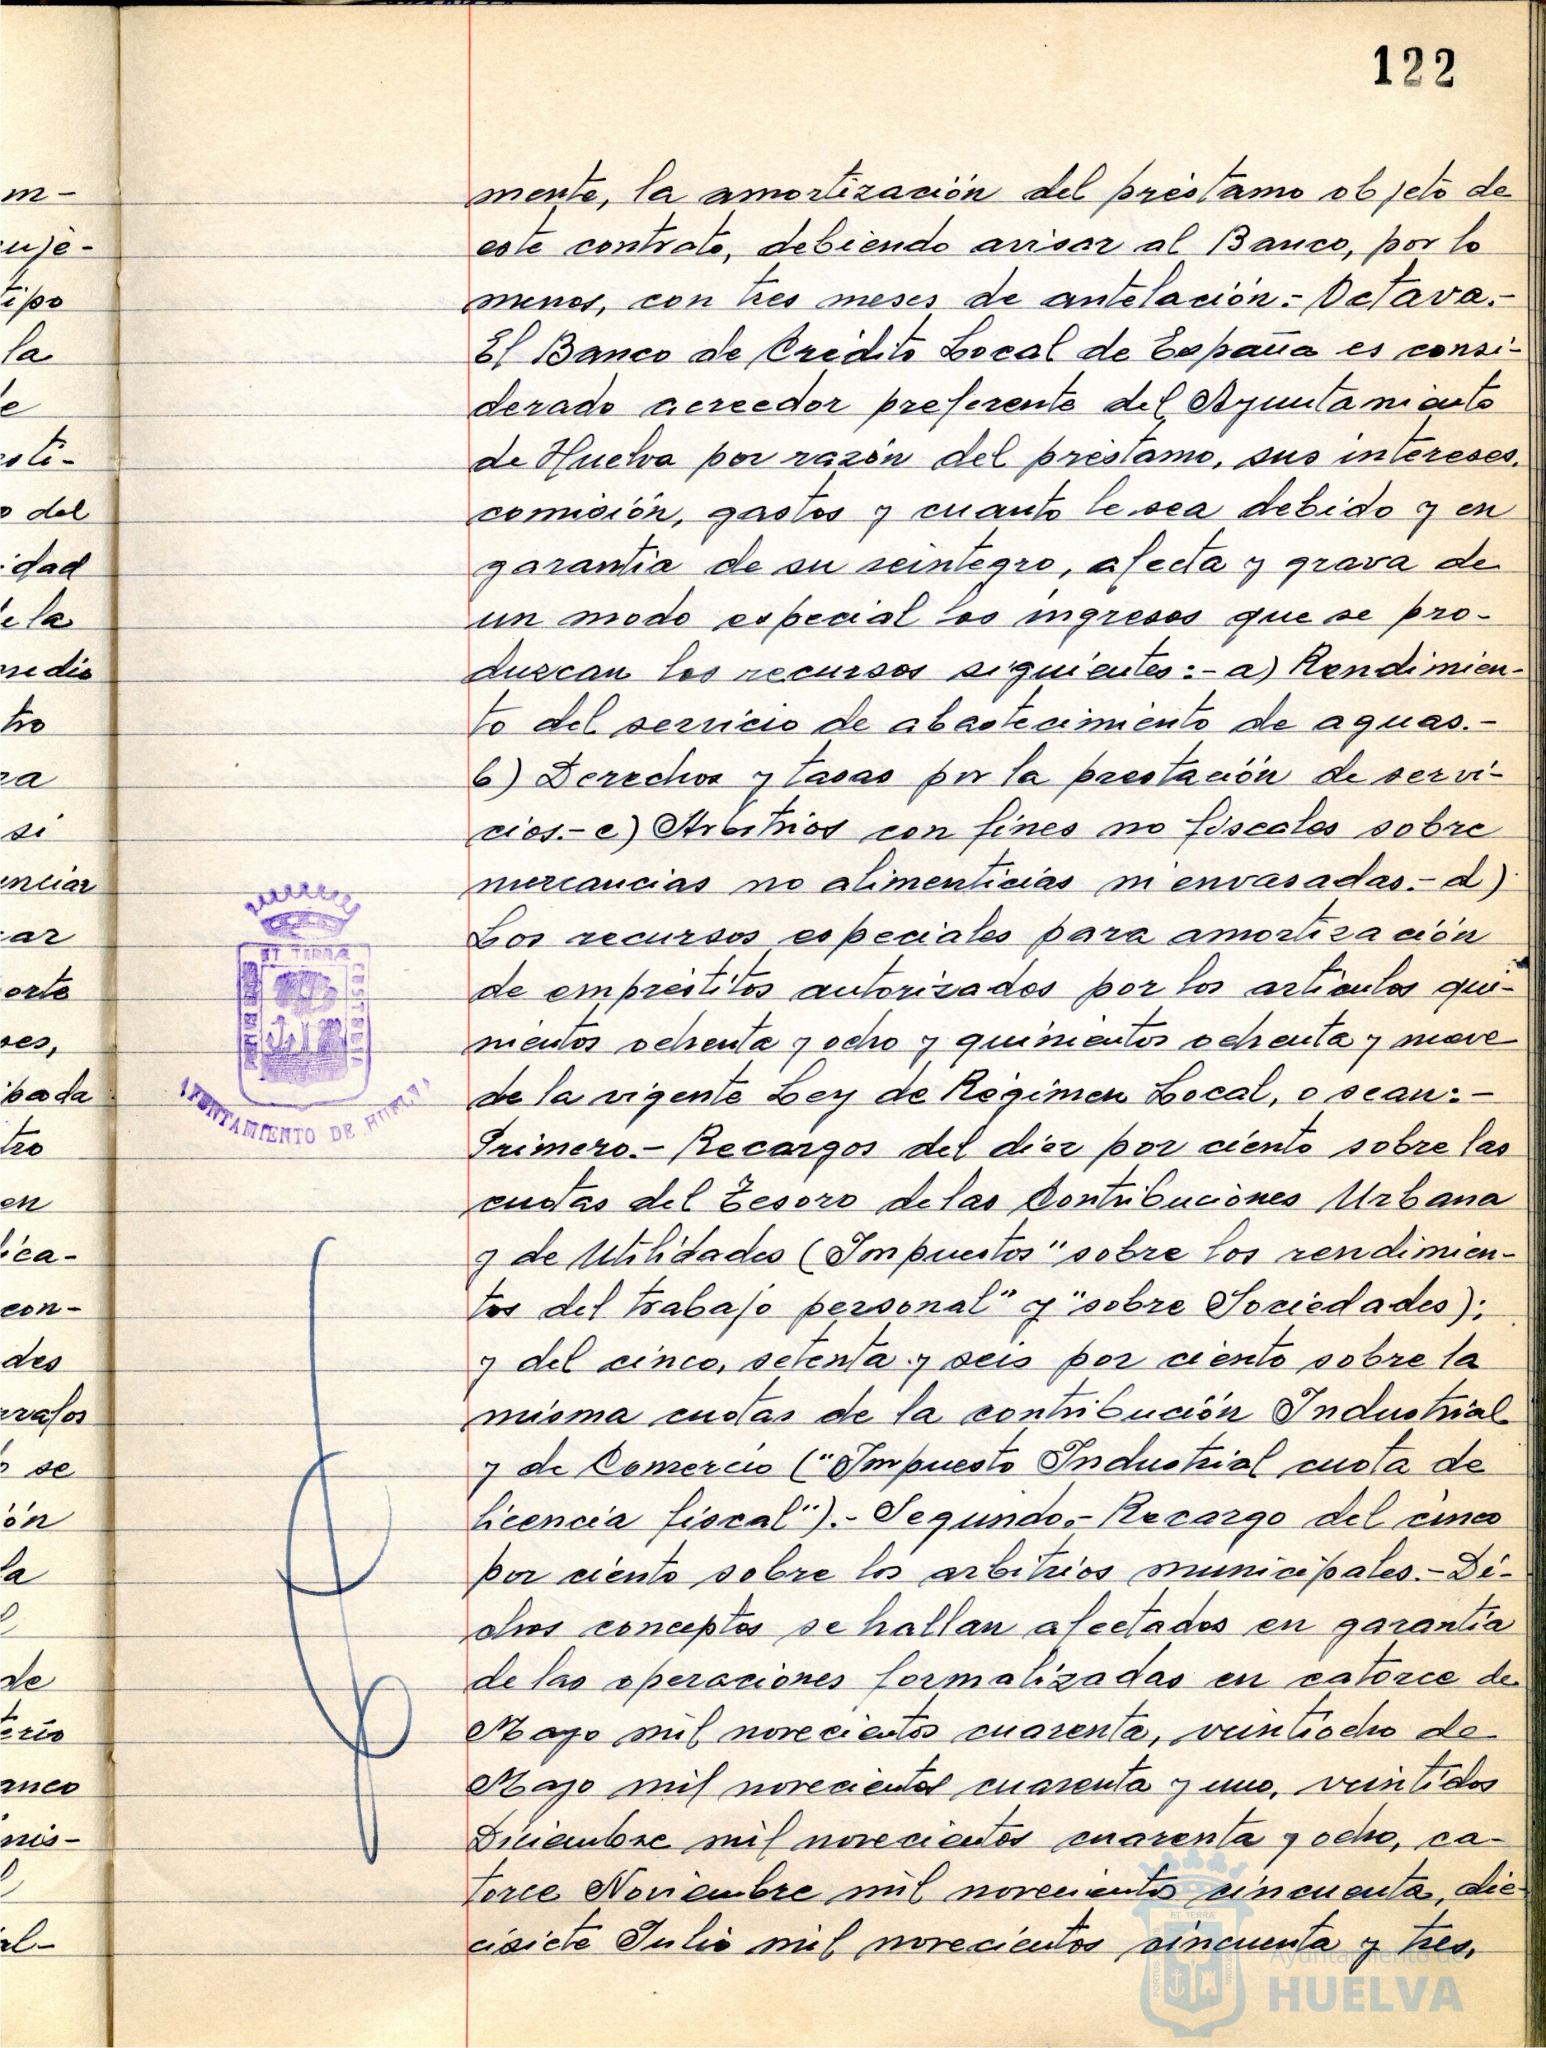 122
m-
uje-
tipo
la
de
esti-
o del
idad
de la
medio
tro
ra
si
enciar
car
orte
res,
ipada
tro
en
lica-
con-
des
rrafos
se
ón
la
de
terio
anco
nis-
al-
mente, la amortización del préstamo objeto de
este contrato, debiendo avisar al Banco, por lo
menos, con tres meses de antelación.- Octava.-
El Banco de Crédito Local de España es consi-
derado acreedor preferente del Ayuntamiento
de Huelva por razón del préstamo, sus intereses,
comisión, gastos y cuanto le sea debido y en
garantía de su reintegro, afecta y grava de
un modo especial los ingresos que se pro-
duzcan los recursos siguientes:- a) Rendimien-
to del servicio de abastecimiento de aguas.-
b) Derechos y tasas por la prestación de servi-
cios.- c) Arbitrios con fines no fiscales sobre
mercancias no alimenticias ni envasadas.- d)
Los recursos especiales para amortización
de empréstitos autorizados por los artículos qui-
nientos ochenta y ocho y quinientos ochenta y nueve
de la vigente Ley de Régimen Local, o sean:-
Primero.- Recargos del diez por ciento sobre las
cuotas del Tesoro de las Contribuciones Urbana
y de Utilidades (Impuestos" sobre los rendimien-
tos del trabajo personal" y "sobre Sociedades);
y del cinco, setenta y seis por ciento sobre la
misma cuotas de la contribución Industrial
y de Comercio ("Impuesto Industrial cuota de
licencia fiscal").- Segundo.- Recargo del cinco
por ciento sobre los arbitrios municipales.- Di-
chos conceptos se hallan afectados en garantía
de las operaciones formalizadas en catorce de
Mayo mil novecientos cuarenta, veintiocho de
Mayo mil novecientos cuarenta y uno, veintidos
Diciembre mil novecientos cuarenta y ocho, ca-
torce Noviembre mil novecientos cincuenta, die-
cisiete Julio mil novecientos cincuenta y tres,
ET TERRÆ
AYUNTAMIENTO DE HUELVA
ET TERRÆ
Ayuntamiento de
HUELVA